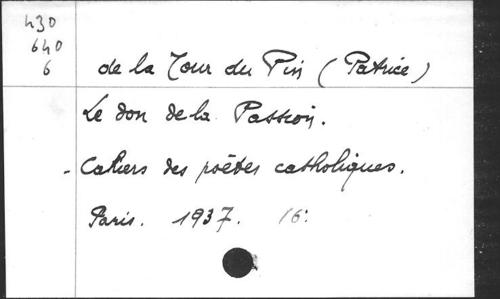 430
640
6
de la Tour du Pin (Patrice)
Le don de la Passion.
- Cahiers des poètes catholiques.
Paris. 1937. 16°.